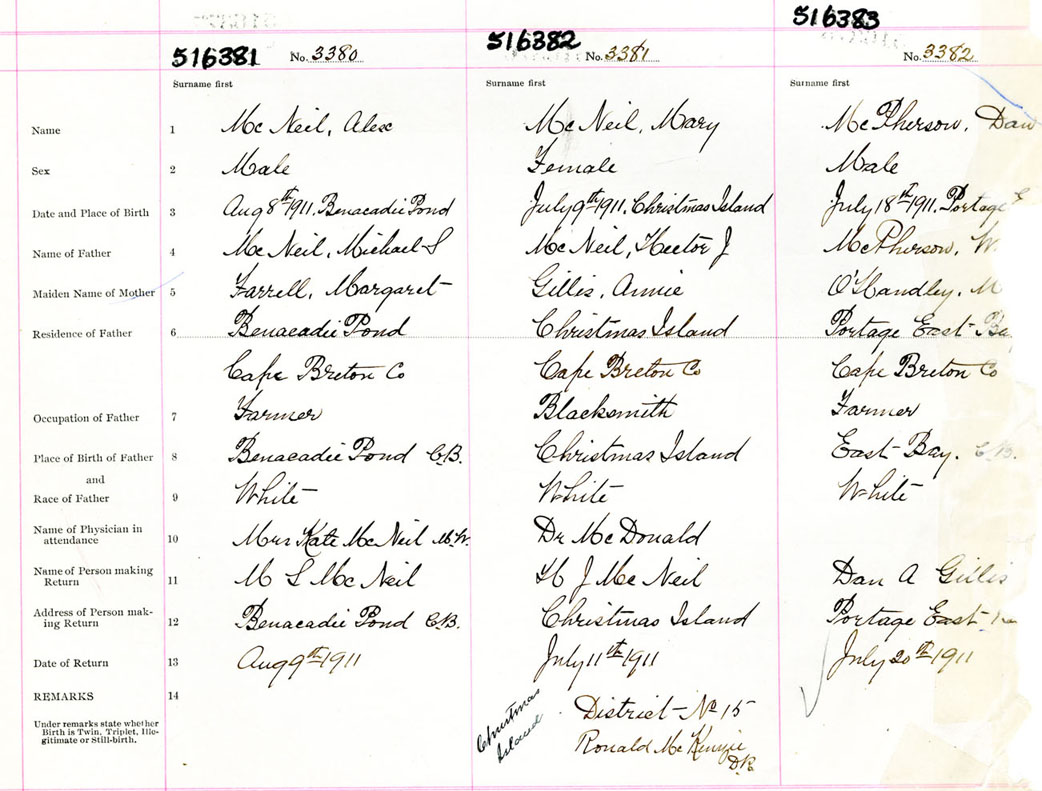 516381 No. 3380 516382 No. 3381 516383 No. 3382
Surname first Surname first Surname first
Name 1 McNeil, Alex McNeil, Mary McPherson, Dan
Sex 2 Male Female Male
Date and Place of Birth 3 Aug 8th 1911. Benacadie Pond July 9th 1911. Christmas Island July 18th 1911. Portage E
Name of Father 4 McNeil, Michael S McNeil, Hector J McPherson, W.
Maiden Name of Mother 5 Farrell, Margaret Gillis, Annie O'Handley, M
Residence of Father 6 Benacadie Pond Christmas Island Portage East Ba
Cape Breton Co Cape Breton Co Cape Breton Co
Occupation of Father 7 Farmer Blacksmith Farmer
Place of Birth of Father 8 Benacadie Pond C.B. Christmas Island East Bay. C.B.
and
Race of Father 9 White White White
Name of Physician in
attendance 10 Mrs Kate McNeil M.W. Dr McDonald
Name of Person making
Return 11 M S McNeil H J McNeil Dan A Gillis
Address of Person mak-
ing Return 12 Benacadie Pond C.B. Christmas Island Portage East
Date of Return 13 Aug 9th 1911 July 11th 1911 July 20th 1911
REMARKS 14
Under remarks state whether
Birth is Twin, Triplet, Ille-
gitimate or Still-birth.
Christmas
Island
District No 15
Ronald McKenzie
D.R.